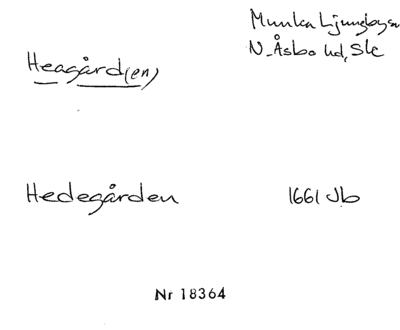 Munka Ljungby sn
N. Åsbo hd, Sk
Heagård(en)
Hedegården 1661 Jb
Nr 18364